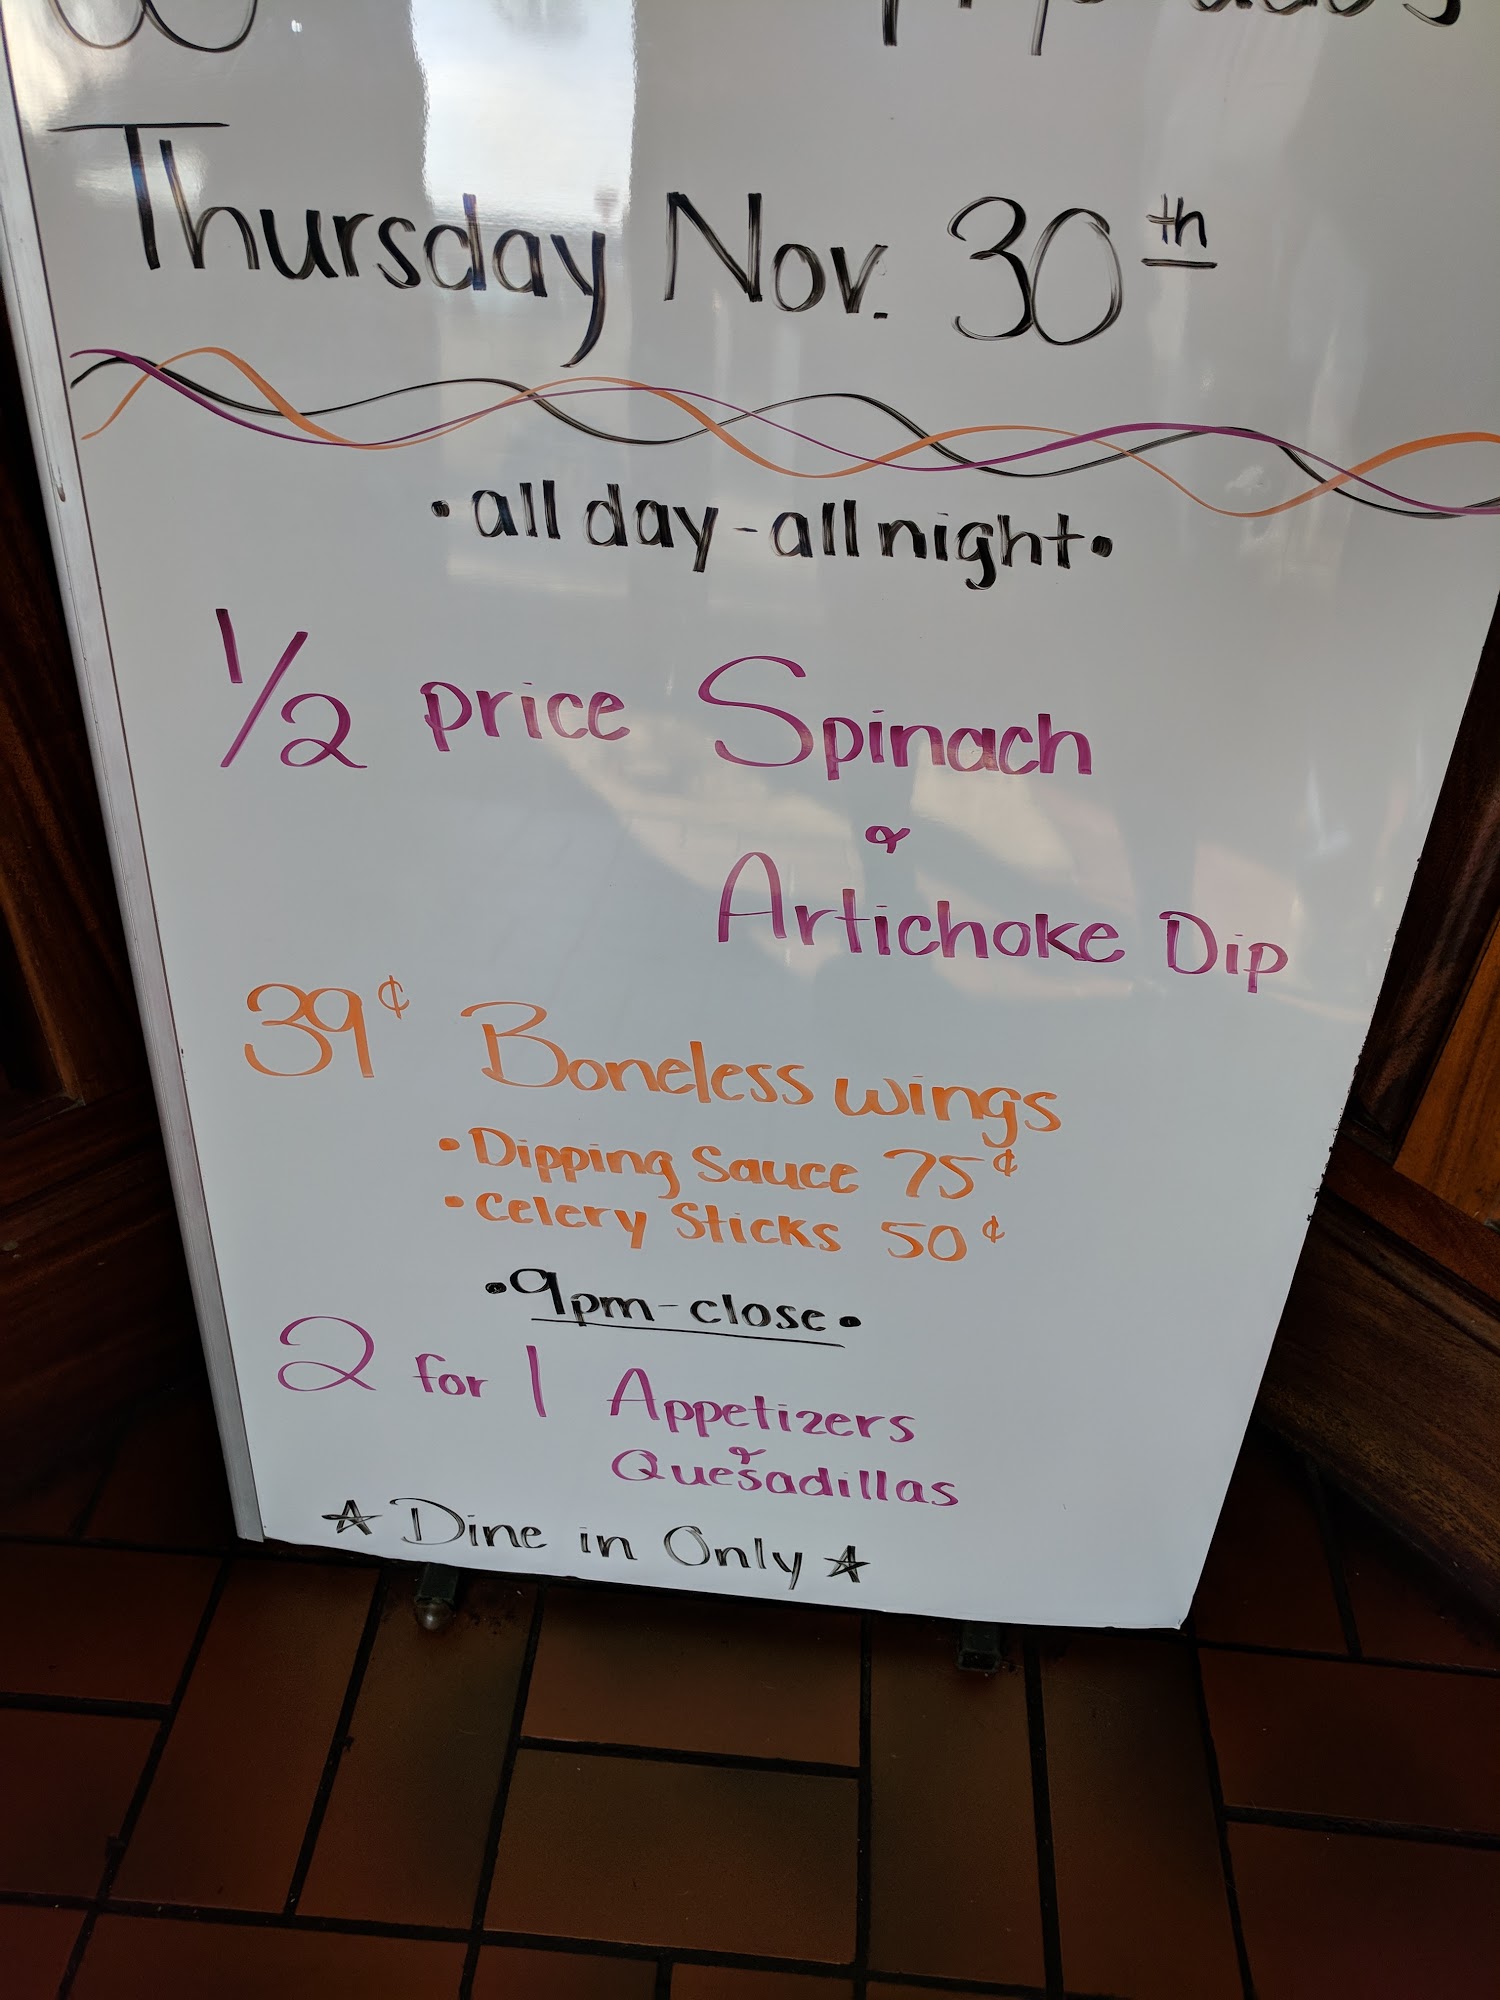 Thursday Nov. 30th
• all day - all night •
1/2 price Spinach
&
Artichoke Dip
39¢ Boneless wings
• Dipping Sauce 75¢
• Celery Sticks 50¢
• 9pm - close •
2 for 1 Appetizers
&
Quesadillas
☆ Dine in Only ☆